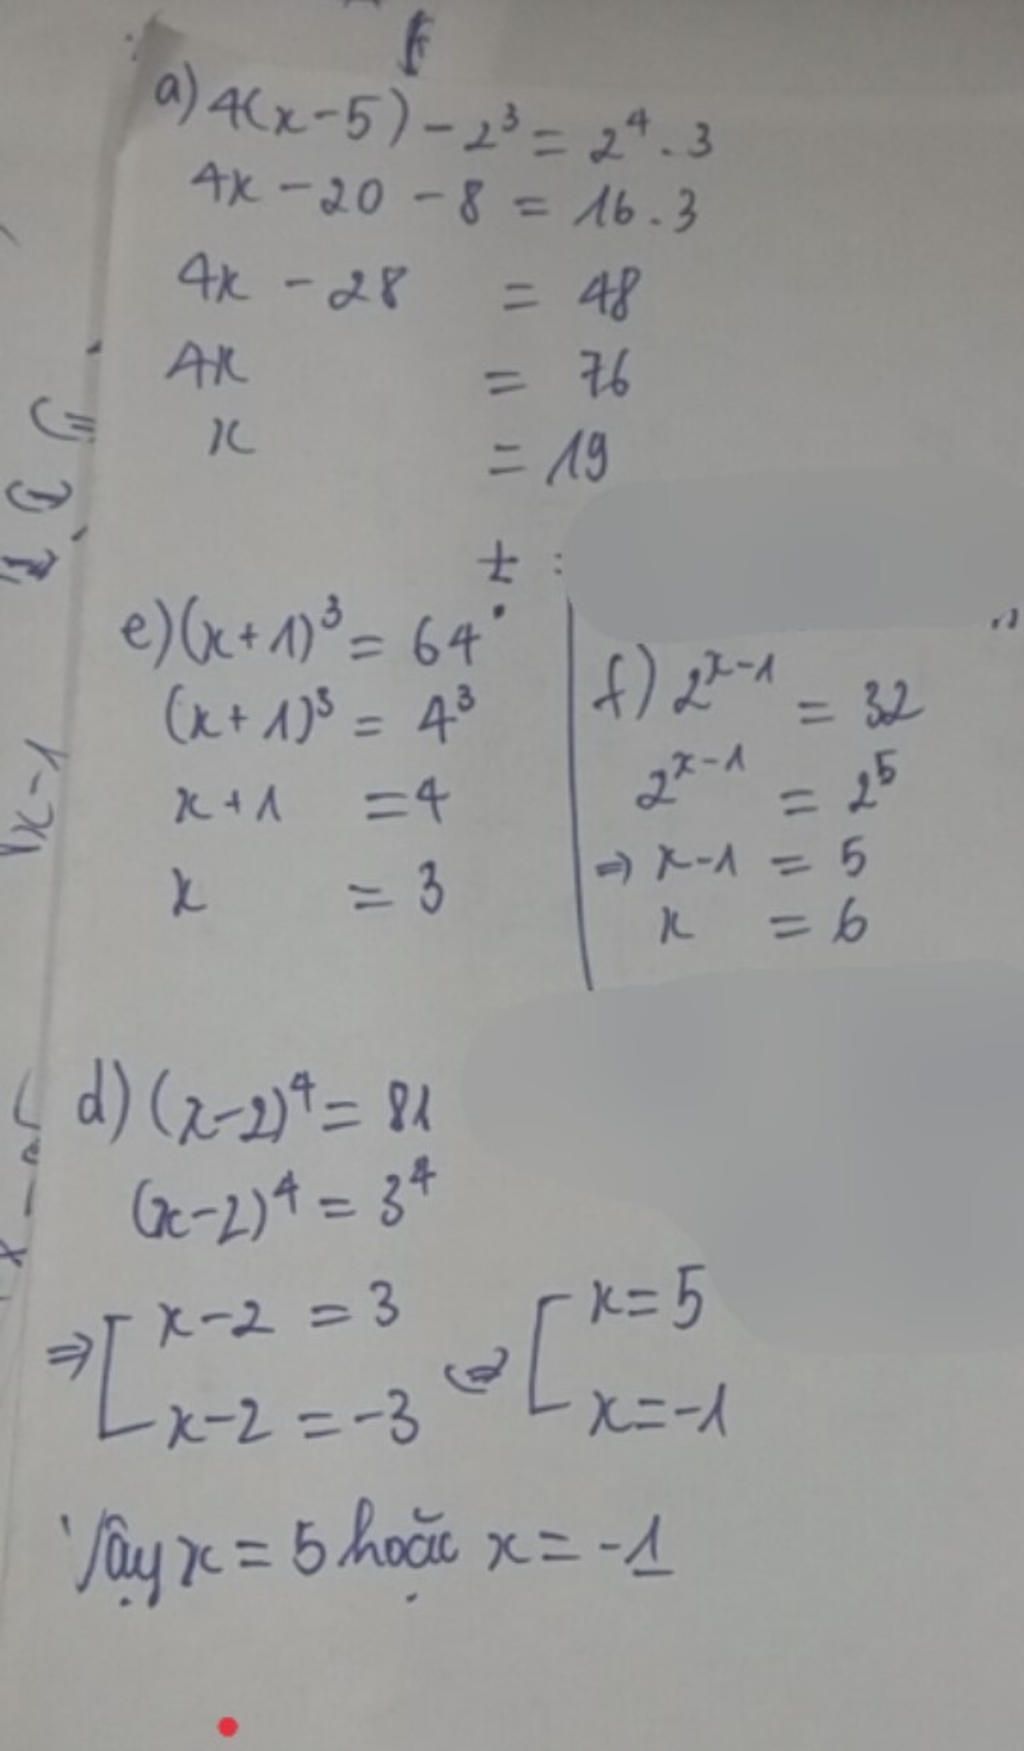 a) 4(x-5) - 2³ = 2⁴ . 3
4x - 20 - 8 = 16 . 3
4x - 28 = 48
4x = 76
x = 19
e) (x+1)³ = 64
(x+1)³ = 4³
x+1 = 4
x = 3
f) 2ˣ⁻¹ = 32
2ˣ⁻¹ = 2⁵
⇒ x-1 = 5
x = 6
d) (x-2)⁴ = 81
(x-2)⁴ = 3⁴
⇒ [ x-2 = 3 ⇔ [ x = 5
x-2 = -3 x = -1
Vậy x = 5 hoặc x = -1
x-1